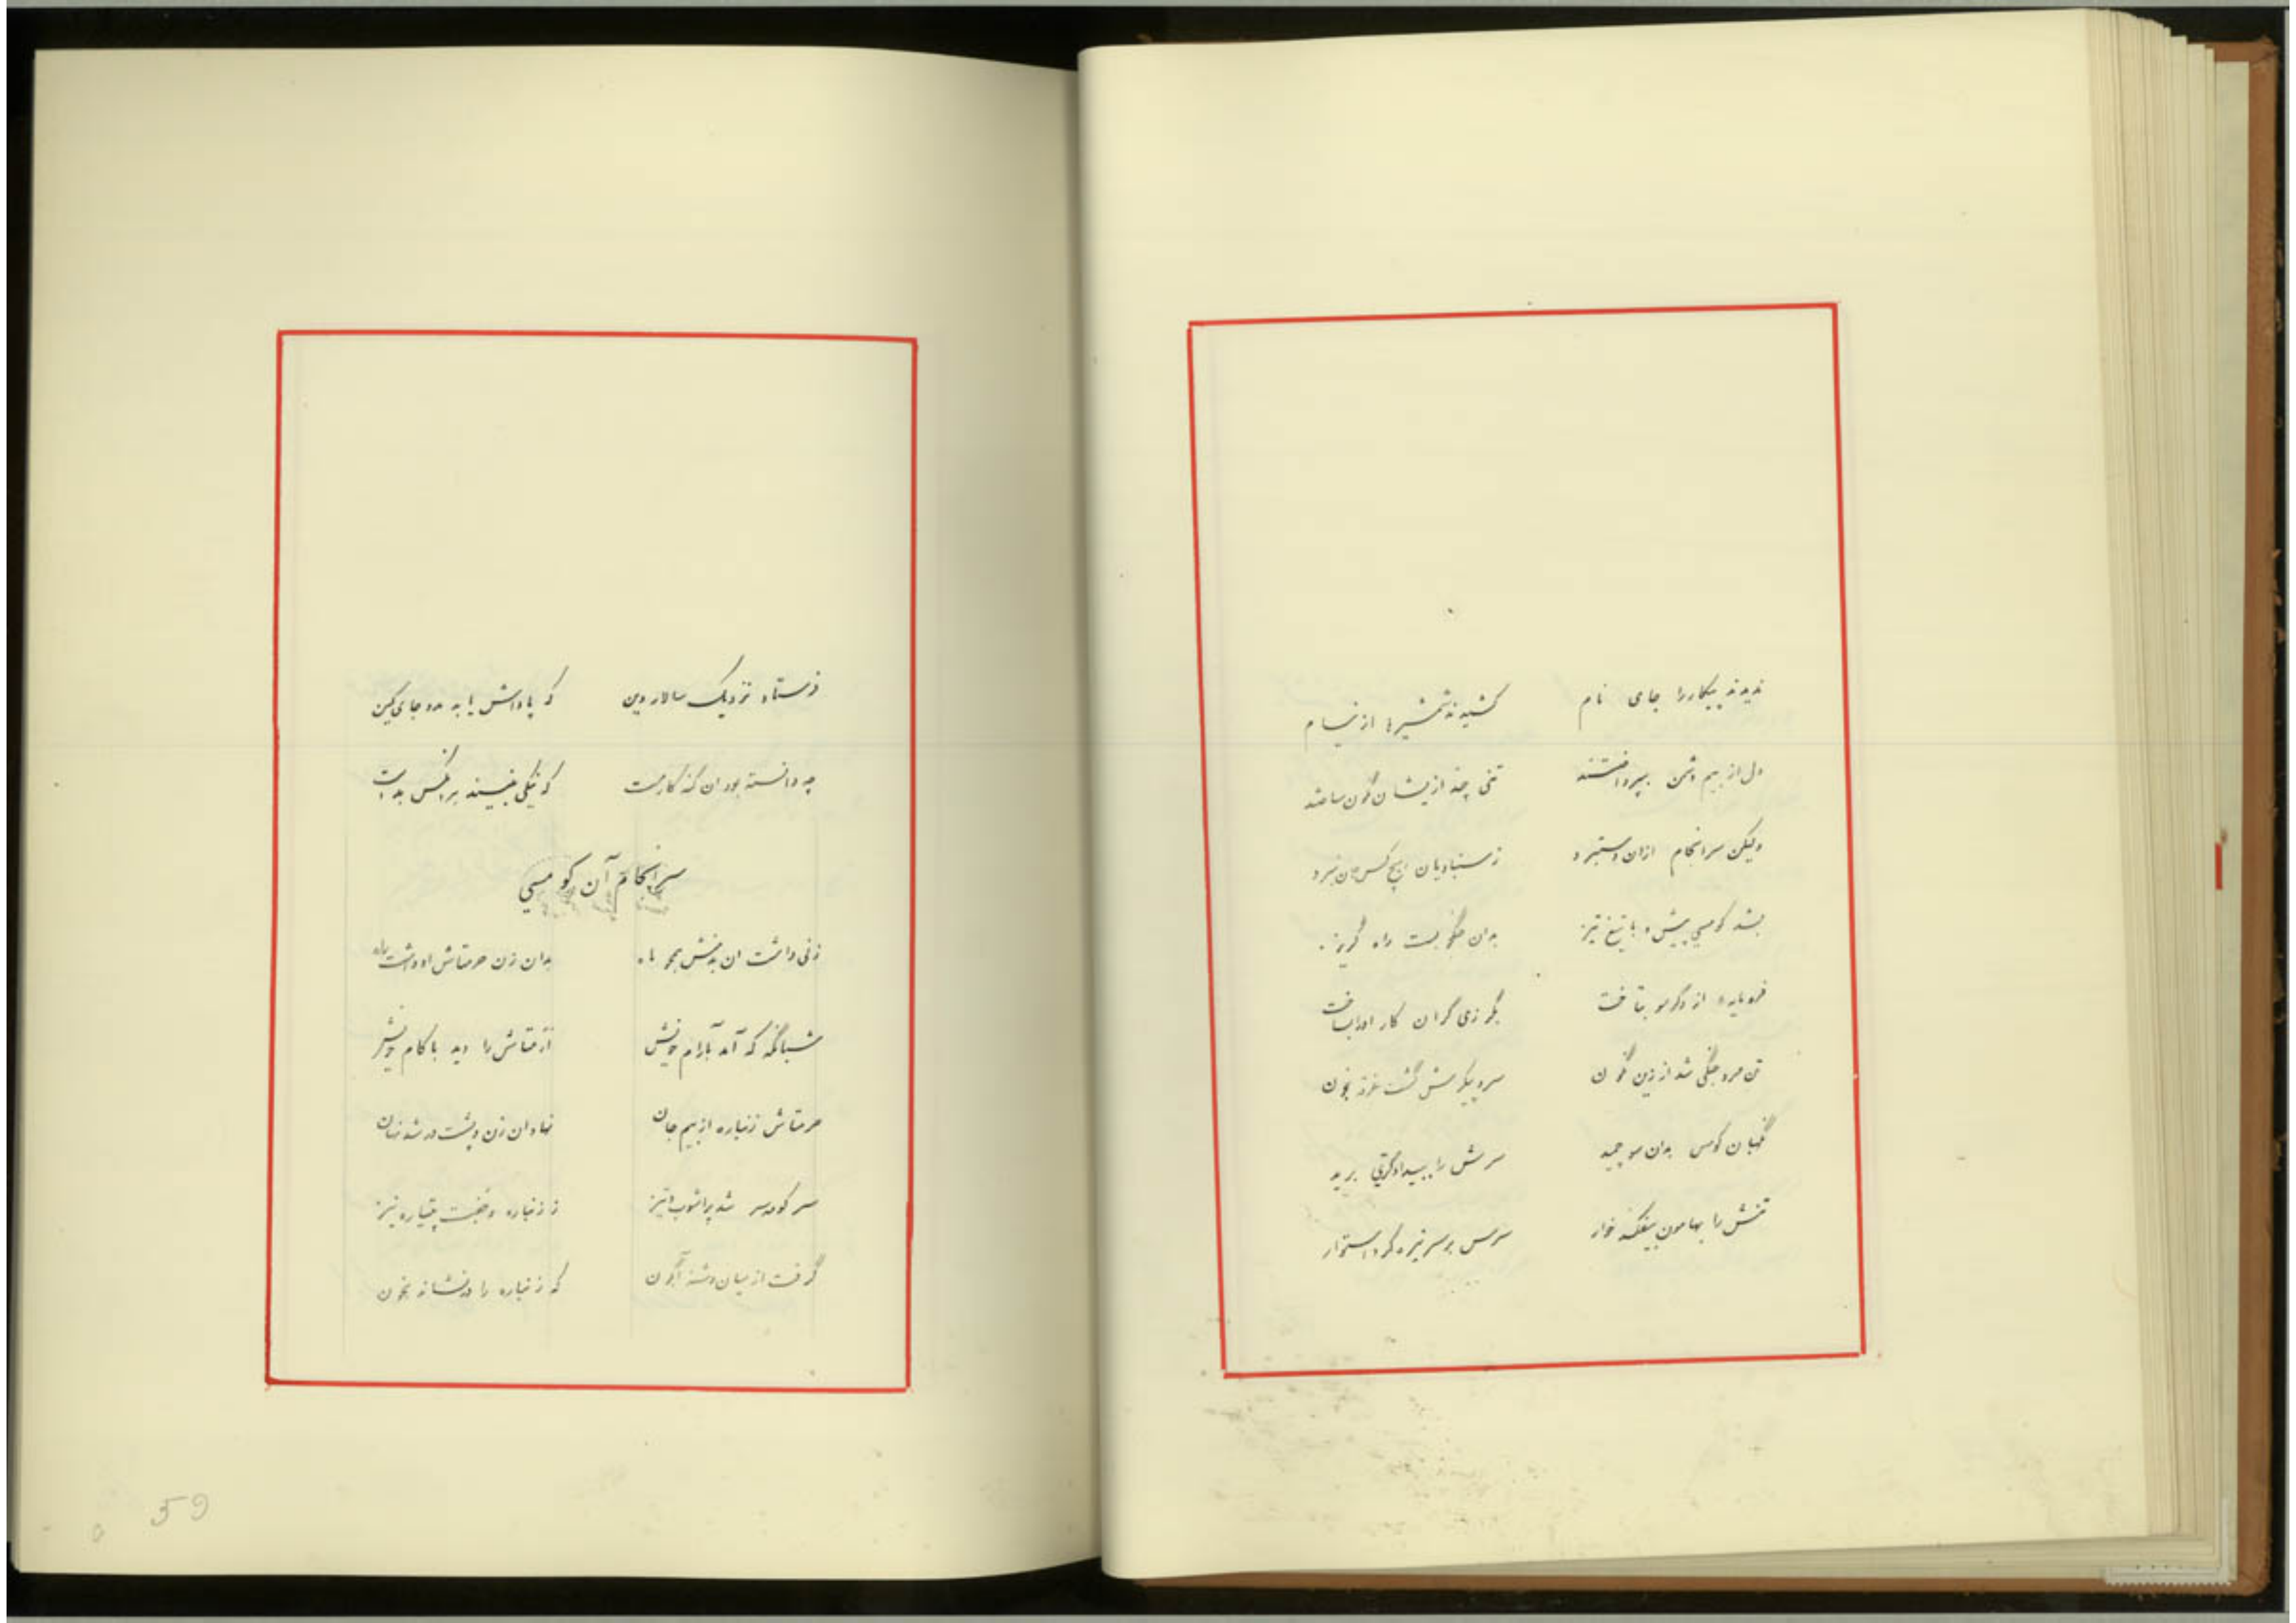 ندیدند پیکار را جای نام کشیدند شمشیرها از نیام
دل از بیم دشمن بپرداختند تنی چند ازیشان نگون ساختند
ولیکن سرانجام ازان دستبرد ز سنبادیان هیچ کس جان نبرد
بشد کومسی پیش و با تیغ تیز بدان جنگجو بست راه گریز
فرومایه از دگر سو بتاخت بگرزی گران کار او را بساخت
تن مرد جنگی شد از زین نگون سر و پیکرش گشت غرقه بخون
نگهبان کومس بدان سو چمید سرش را ببیدادگری برید
تنش را بهامون بیفکند خوار سرش بر سر نیزه کرد استوار
فرستاد نزدیک سالار دین که پاداش یابد جای کین
چه دانسته بود ان گنه کار مست که نیکی نبیند هر انکس بد است
سرانجام آن کومسی
زنی داشت ان بدمنش همچو ماه بدان زن خرتاش او داشت راه
شبانگه که آمد بآرام خویش خرتاش را دید با کام خویش
خرتاش زنباره از بیم جان نهاد ان زن و پشت در شد نهان
سر کومسر شد پر اشوب و تیز ز زنباره وجفت پتیاره نیز
گرفت از میان دشنه آبگون که زنباره را درنشاند بخون
59